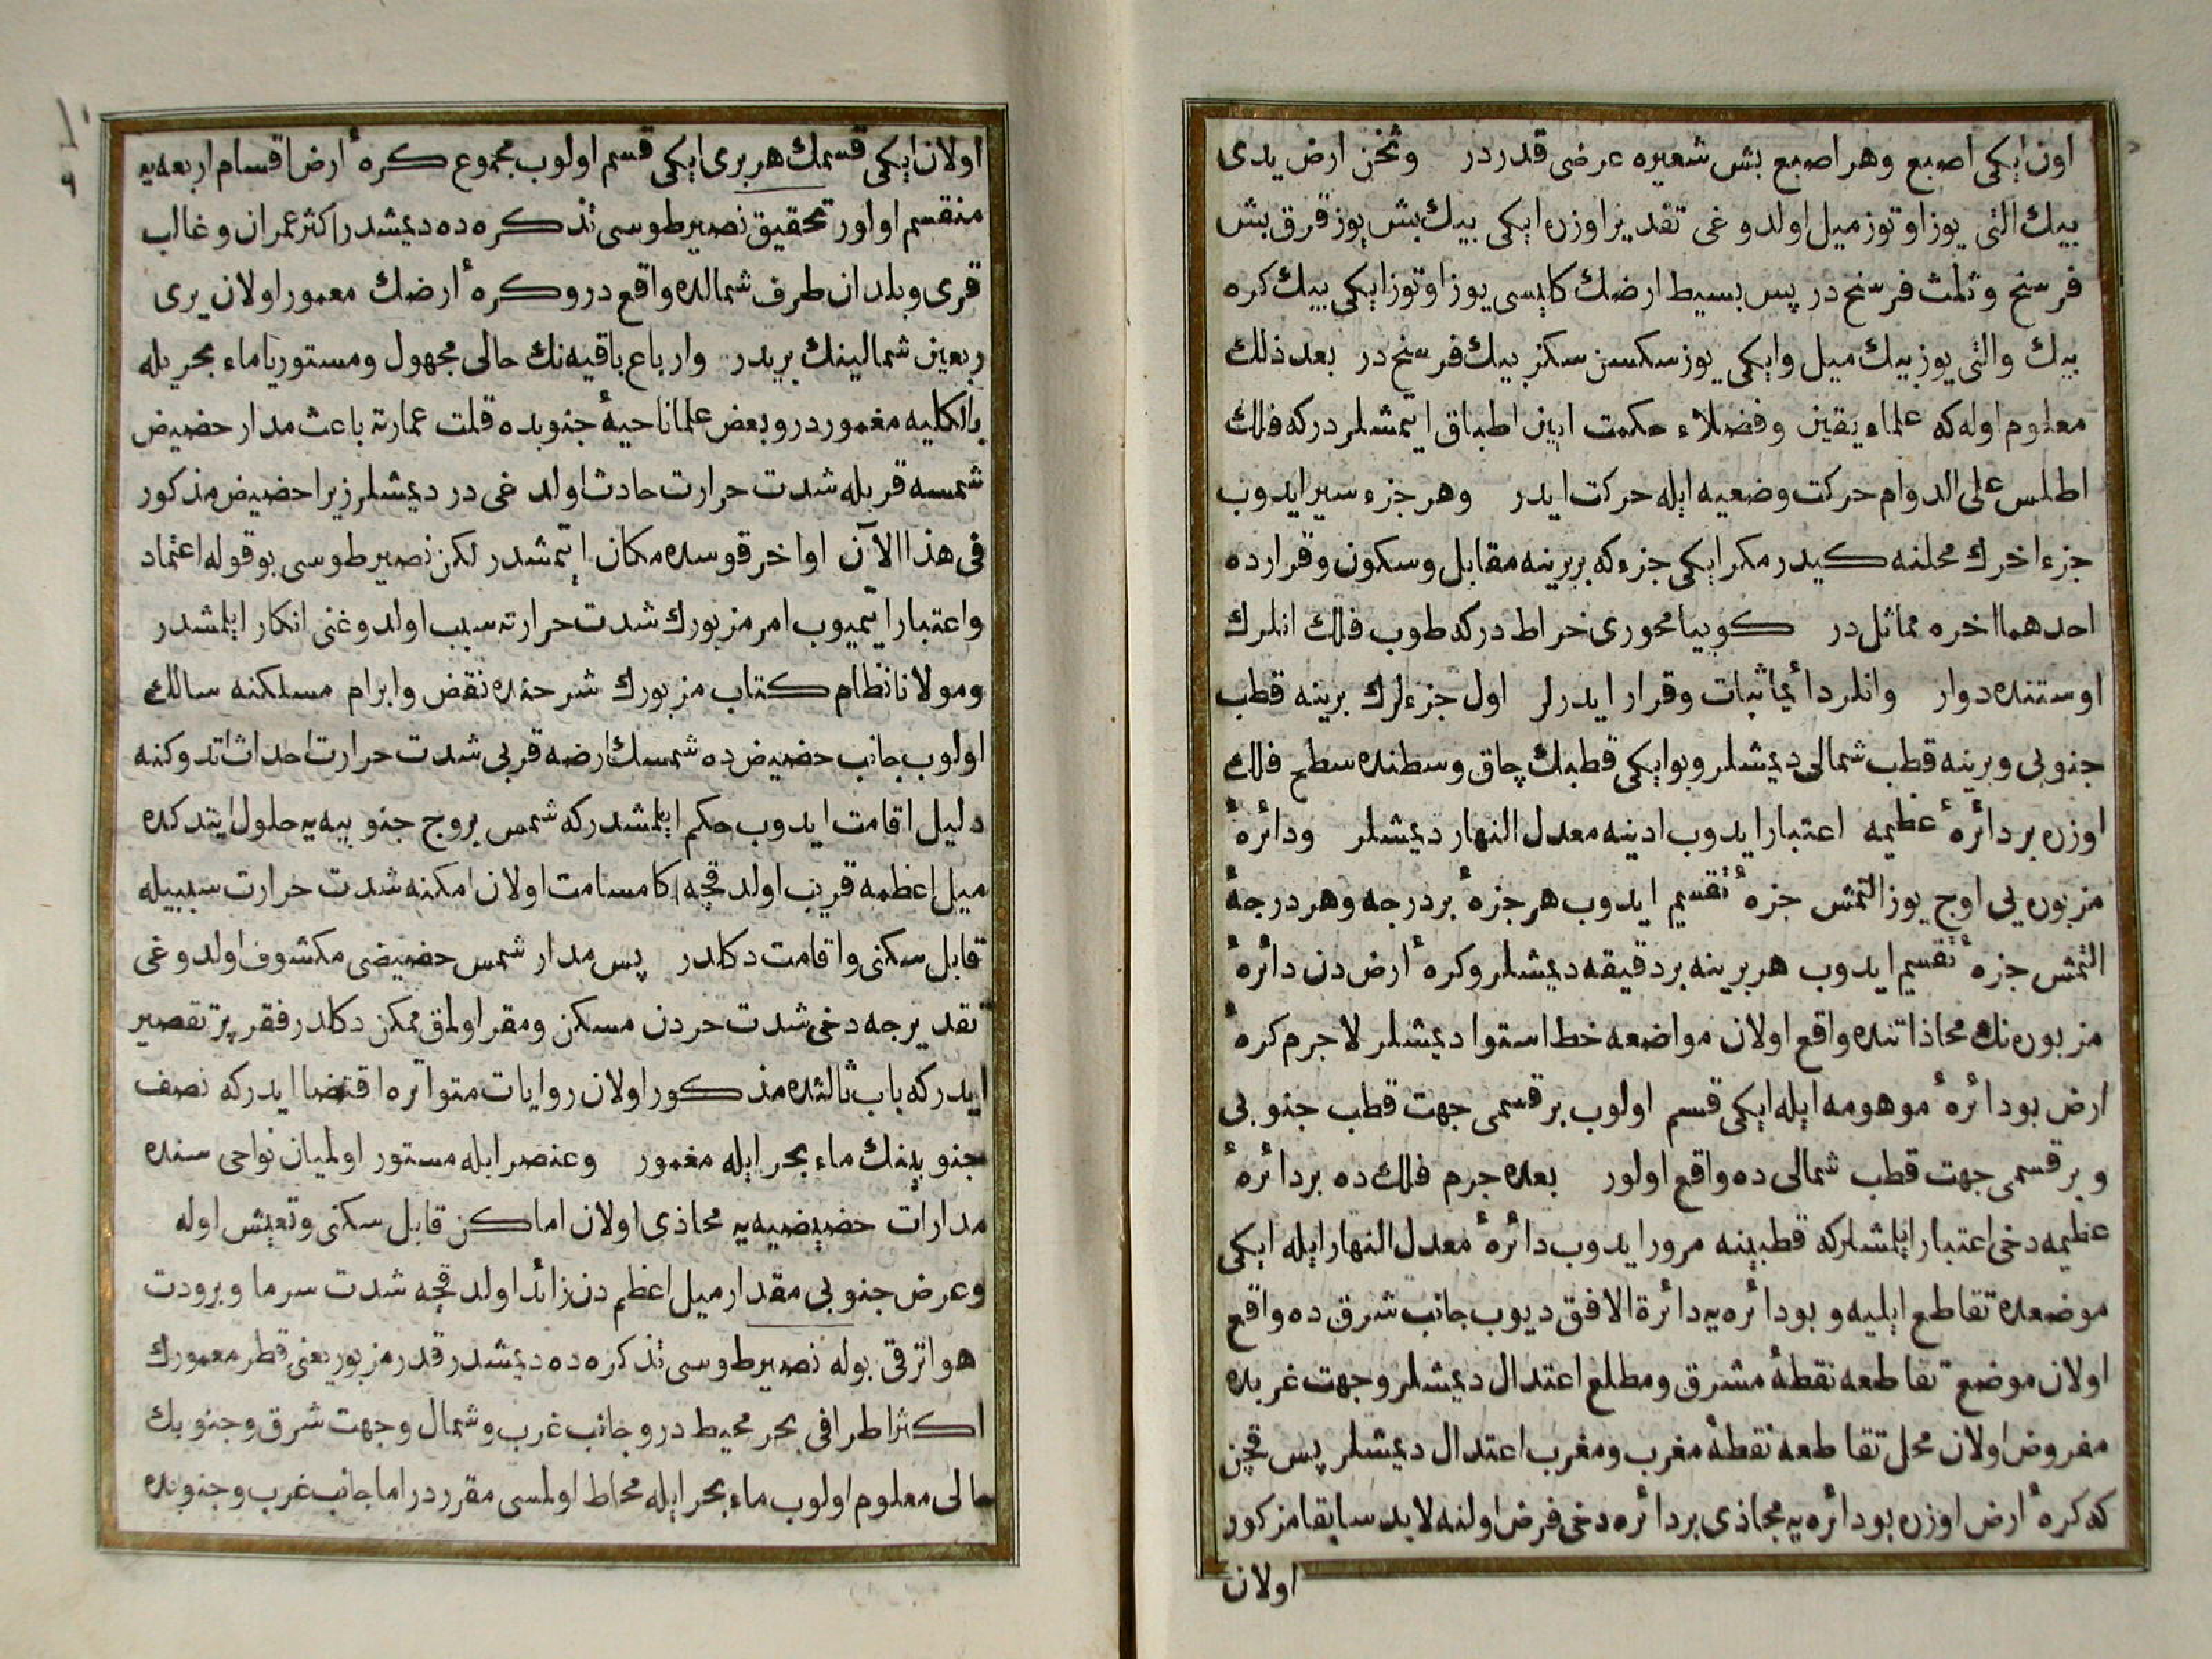 اون ایکی اصبع وهر اصبع بش شعیره عرضی قدردر وثخن ارض یدی
بیك التی یوز اوتوز میل اولدوغی تقدیر اوزره ایکی بیك بش یوز قرق بش
فرسخ وثلث فرسخدر پس بسیط ارضك کلیسی یوز اوتوز ایکی بیك کره
بیك والتی یوز بیك میل وایکی یوز سکسن سکز بیك فرسخدر بعد ذلك
معلوم اوله که علماء یقین وفضلاء حکمت ایین اطباق ایتمشلردرکه فلك
اطلس علی الدوام حرکت وضعیه ایله حرکت ایدر وهر جزء سیر ایدوب
جزء اخرك محلنه کیدر مکر ایکی جزء که بربرینه مقابل وسکون وقرارده
احدهما اخره مماثلدر کوییا محوری خراط درکه طوب فلك انلرك
اوستنده دوار وانلر دائما ثبات وقرار ایدرلر اول جزءلرك برینه قطب
جنوبی وبرینه قطب شمالی دیمشلر وبو ایکی قطبك چاق وسطنده سطح فلك
اوزره بر دائرهٔ عظیمه اعتبار ایدوب ادینه معدل النهار دیمشلر ودائرهٔ
مزبوره یی اوچ یوز التمش جزءه تقسیم ایدوب هر جزءه بر درجه وهر درجهٔ
التمش جزءه تقسیم ایدوب هر برینه بر دقیقه دیمشلر وکرهٔ ارض دن دائرهٔ
مزبوره نك محاذاتنده واقع اولان مواضعه خط استوا دیمشلر لاجرم کرهٔ
ارض بو دائرهٔ موهومه ایله ایکی قسم اولوب بر قسمی جهت قطب جنوبی
وبر قسمی جهت قطب شمالی ده واقع اولور بعده جرم فلك ده بر دائرهٔ
عظیمه دخی اعتبار ایلمشلرکه قطبینه مرور ایدوب دائرهٔ معدل النهار ایله ایکی
موضعده تقاطع ایلیه وبو دائره یه دائرة الافق دیوب جانب شرق ده واقع
اولان موضع تقاطعه نقطهٔ مشرق ومطلع اعتدال دیمشلر وجهت غربده
مفروض اولان محل تقاطعه نقطهٔ مغرب ومغرب اعتدال دیمشلر پس قچن
که کرهٔ ارض اوزره بو دائره یه محاذی بر دائره دخی فرض اولنه لابد سابقا مزکور
اولان
اولان ایکی قسمك هر بری ایکی قسم اولوب مجموع کرهٔ ارض اقسام اربعه یه
منقسم اولور تحقیق نصیر طوسی تذکره ده دیمشدر اکثر عمران وغالب
قری وبلدان طرف شمالده واقعدر وکرهٔ ارضك معمور اولان یری
ربعین شمالینك بریدر وارباع باقیه نك حالی مجهول ومستور یا ماء بحریله
بالکلیه مغموردر وبعض علما ناحیهٔ جنوبده قلت عمارته باعث مدار حضیض
شمسه قربله شدت حرارت حادث اولدغی در دیمشلر زیرا حضیض مذکور
فی هذا الآن اواخر قوسده مکان ایتمشدر لکن نصیر طوسی بو قوله اعتماد
واعتبار ایتمیوب امر مزبورك شدت حرارته سبب اولدوغنی انکار ایلمشدر
ومولانا نظام کتاب مزبورك شرحنده نقض وابرام مسلکنه سالك
اولوب جانب حضیض ده شمسك ارضه قربی شدت حرارت احداث اتدوکنه
دلیل اقامت ایدوب حکم ایلمشدرکه شمس بروج جنوبیه یه حلول ایتدکده
میل اعظمه قریب اولدقچه اکا مسامت اولان امکنه شدت حرارت سببیله
قابل سکنی واقامت دکلدر پس مدار شمس حضیضی مکشوف اولدوغی
تقدیرجه دخی شدت حردن مسکن ومقر اولمق ممکن دکلدر فقر پر تقصیر
ایدرکه باب ثالثده مذکور اولان روایات متواتره اقتضا ایدرکه نصف
جنوبینك ماء بحر ایله مغمور وعنصر ایله مستور اولمیان نواحی سنده
مدارات حضیضیه یه محاذی اولان اماکن قابل سکنی وتعیش اوله
وعرض جنوبی مقدار میل اعظم دن زائد اولدقچه شدت سرما وبرودت
هوا ترقی بوله نصیر طوسی تذکره ده دیمشدر قدر مزبور یعنی قطر معمورك
اکثر اطرافی بحر محیطدر وجانب غرب وشمال وجهت شرق وجنوبك
حالی معلوم اولوب ماء بحر ایله محاط اولمسی مقرردر اما جانب غرب وجنوبده